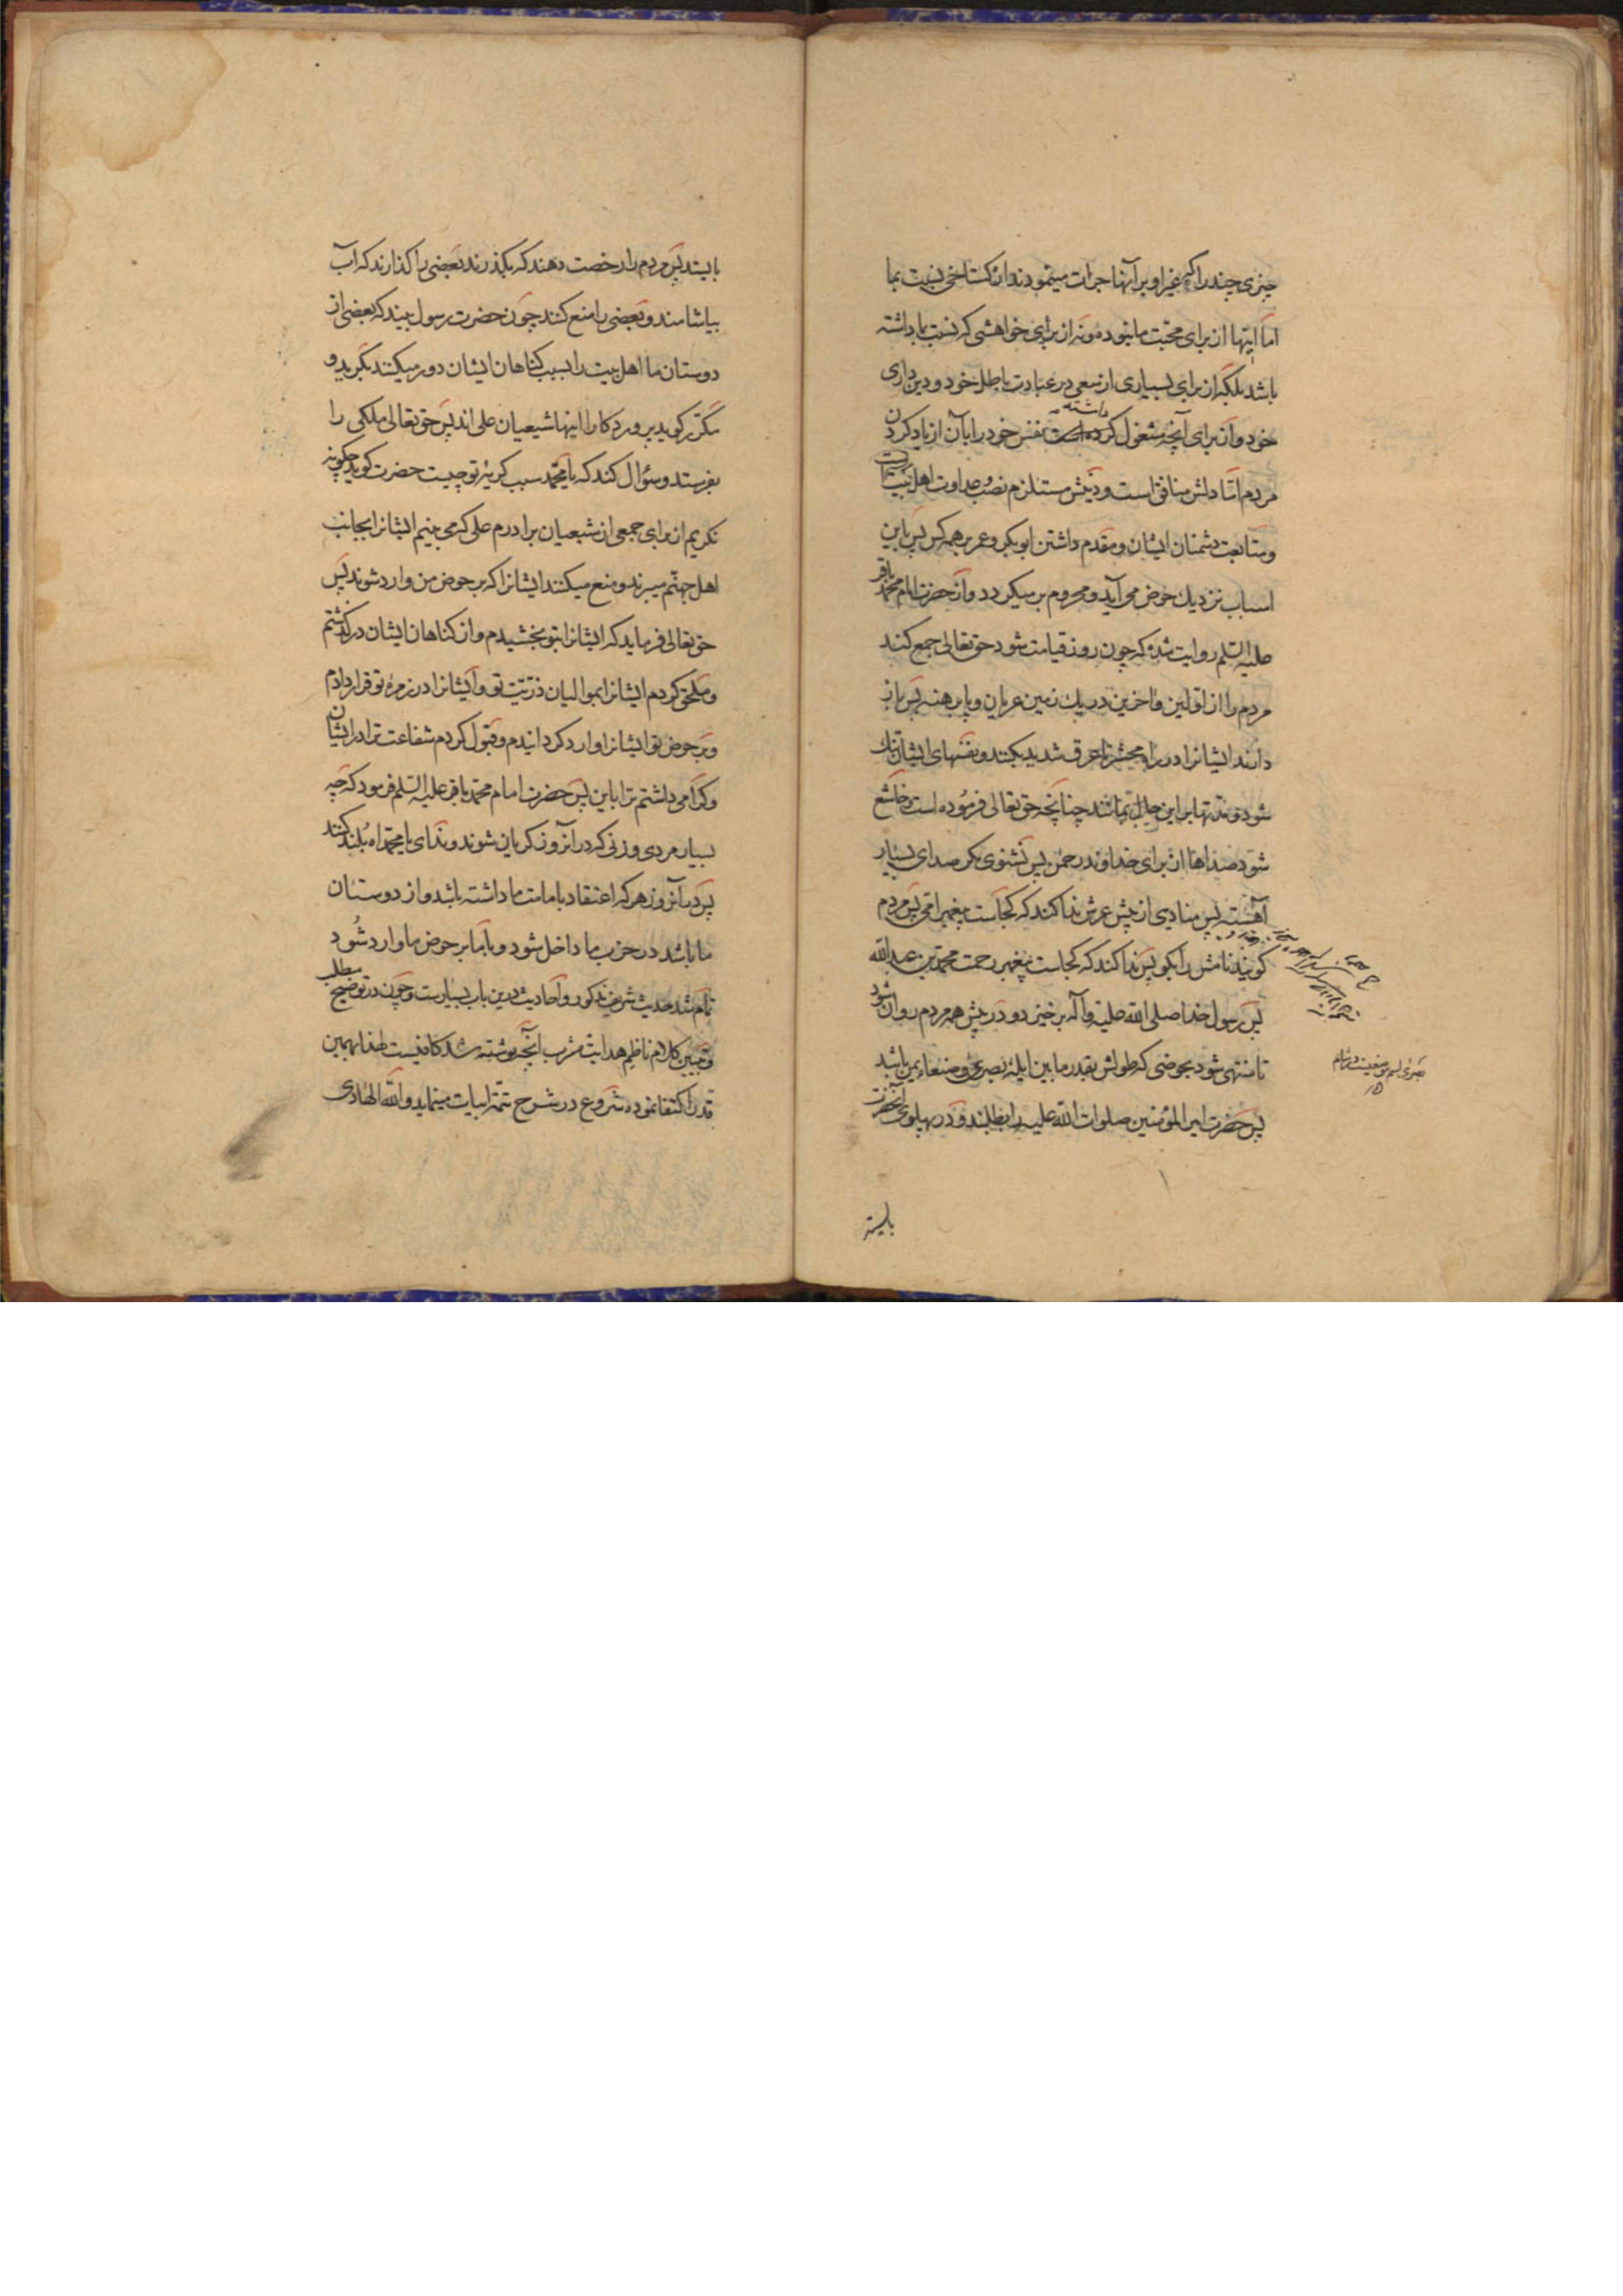 چیزی چند را که غیر او بر آنها جرات مینمودند از کستاخی نسبت بما
اما اینها از برای محبّت ما نبوده و نه از برای خواهشی که نسبت با داشته
باشد بلکه از برای بسیاری از سعی در عبادت باطل خود و دین داری
خود و از برای آنچه مشغول کرده است داشته نفس خود را بآن از یاد کردن
مردم امّا دلش منافق است و دینش مستلزم نصب و عداوت اهل بیت است
و متابعت دشمنان ایشان و مقدم داشتن ابو بکر و عمر بر همه کس پس باین
اسباب نزدیك حوض می آید و محروم بر میکردد و از حضرت امام محمد باقر
علیه السّلم روایت شده که چون روز قیامت شود حق تعالی جمع کند
مردم را از اوّلین و اخرین در یك زمین عریان و پا برهنه پس باز
دارند ایشانرا در راه محشر تا عرق شدید بکنند و نفسهای ایشان تنك
شود و مدتها بر این حال بمانند چنانچه حق تعالی فرموده است و خاشع
شود صداها از برای خداوند رحمن پس نشنوی مکر صدای بسیار
آهسته پس منادی از پیش عرش ندا کند که کجاست پیغمبر امّی پس مردم
کویند نامش را بکو پس ندا کند که کجاست پیغمبر رحمت محمد بن عبد الله
پس رسول خدا صلی الله علیه و آله بر خیزد و در پیش همه مردم روان شود
تا منتهی شود بحوضی که طولش بقدر ما بین ایله بصری و صنعاء یمن باشد
پس حضرت امیر المؤمنین صلوات الله علیه را بطلبند و در پهلوی آنحضرت
بصری اسم موضعیست در شام
بایستد
بایستد پس مردم را رخصت دهند که بکذرند بعضی را کذارند که اب
بیاشامند و بعضی را منع کنند چون حضرت رسول بیند که بعضی از
دوستان ما اهل بیت را بسبب کناهان ایشان دور میکنند بکرید و
مکرّر کوید پروردکارا اینها شیعیان علی اند پس حق تعالی ملکی را
بفرستد و سؤال کند که یا محمّد سبب کریهٔ تو چیست حضرت کوید چکونه
نکریم از برای جمعی از شیعیان برادرم علی که می بینم ایشانرا بجانب
اهل جهنّم میبرند و منع میکنند ایشانرا که بر حوض من وارد شوند پس
حق تعالی فرماید که ایشانرا بتو بخشیدم و از کناهان ایشان در کذشتم
و ملحق کردم ایشانرا بموالیان ذرّیّت تو و ایشانرا در زمرهٔ تو قرار دادم
و بر حوض تو ایشانرا وارد کردانیدم و قبول کردم شفاعت ترا در ایشان
و کرامی داشتم ترا باین پس حضرت امام محمّد باقر علیه السّلم فرمود که چه
بسیار مردی و زنی که در آنروز کریان شوند و ندای یا محمّداه بلند کنند
پس در آنروز هر که اعتقاد بامامت ما داشته باشد و از دوستان
ما باشد در حزب ما داخل شود و با ما بر حوض ما وارد شود
تمام شد حدیث شریف مذکور و احادیث درین باب بسیارست و چون در توضیح مطلب
و تبیین کلام ناظم هدایت مشرب آنچه نوشته شد کافیست لهذا بهمین
قدر اکتفا نموده شروع در شرح تتمّه ابیات مینماید و الله الهادی